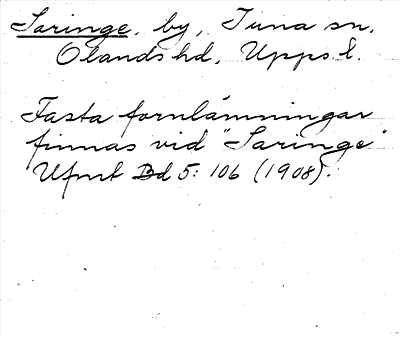 Saringe, by, Tuna sn,
Olands hd, Upps l.
Fasta fornlämningar
finnas vid "Saringe"
Ufmt Bd 5: 106 (1908).